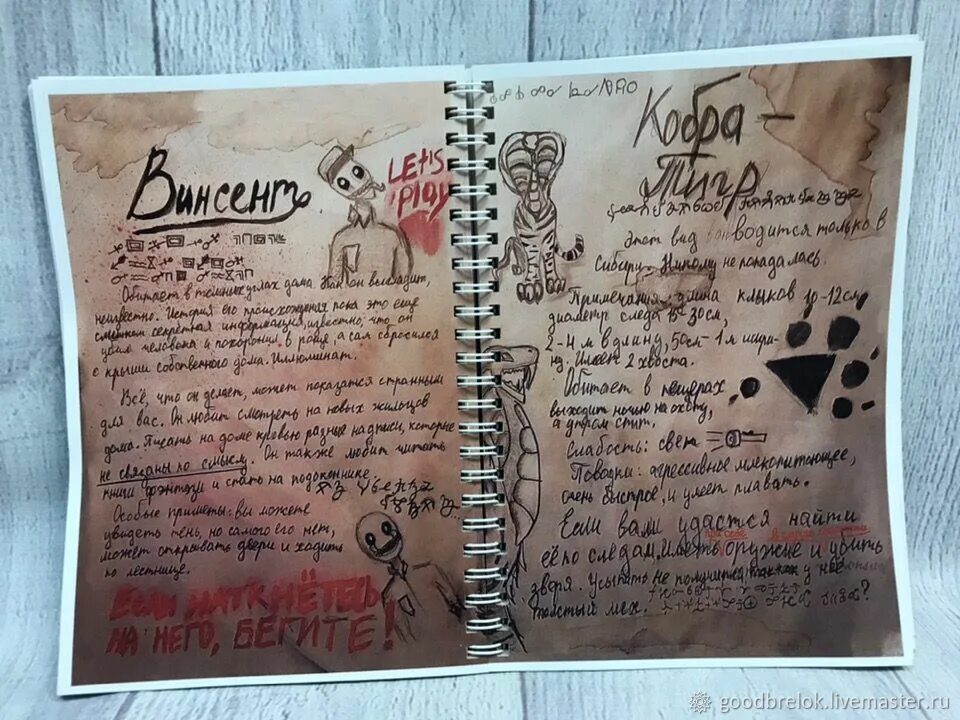 Винсент
LET'S
PLAY
Обитает в тёмных углах дома. Как он выглядит,
неизвестно. История его происхождения пока это ещё
секретная информация, известно, что он
убил человека и похоронил в , а сам сбросился
с крыши собственного дома. Иллюминат.
Всё, что он делает, может показатся странным
для вас. Он любит смотреть на новых жильцов
дома. Писать на доме кровью разные надписи, которые
не связаны по смыслу. Он также любит читать
книги фэнтези и спать на подоконнике.
Особые приметы: вы можете
увидеть тень, но самого его нет,
может открывать двери и ходить
по лестнице.
ЕСЛИ НАТКНЁТЕСЬ
НА НЕГО, БЕГИТЕ!
Кобра-
Тигр
Этот вид водится только в
Сибири. Никому не попадалась.
Примечания: длина клыков 10-12см,
диаметр следа 15-30см,
2-4 м в длину, 50см-1 м шири-
ну. Имеет 2 хвоста.
Обитает в пещерах
выходит ночью на охоту,
а утром спит.
Слабость: свет
Повадки: агрессивное млекопитающее,
очень быстрое, и умеет плавать.
Если вам удастся найти
при себе
её по следам, иметь оружие и убить
зверя. Усыпить не получится, у неё
толстый мех.
goodbrelok.livemaster.ru